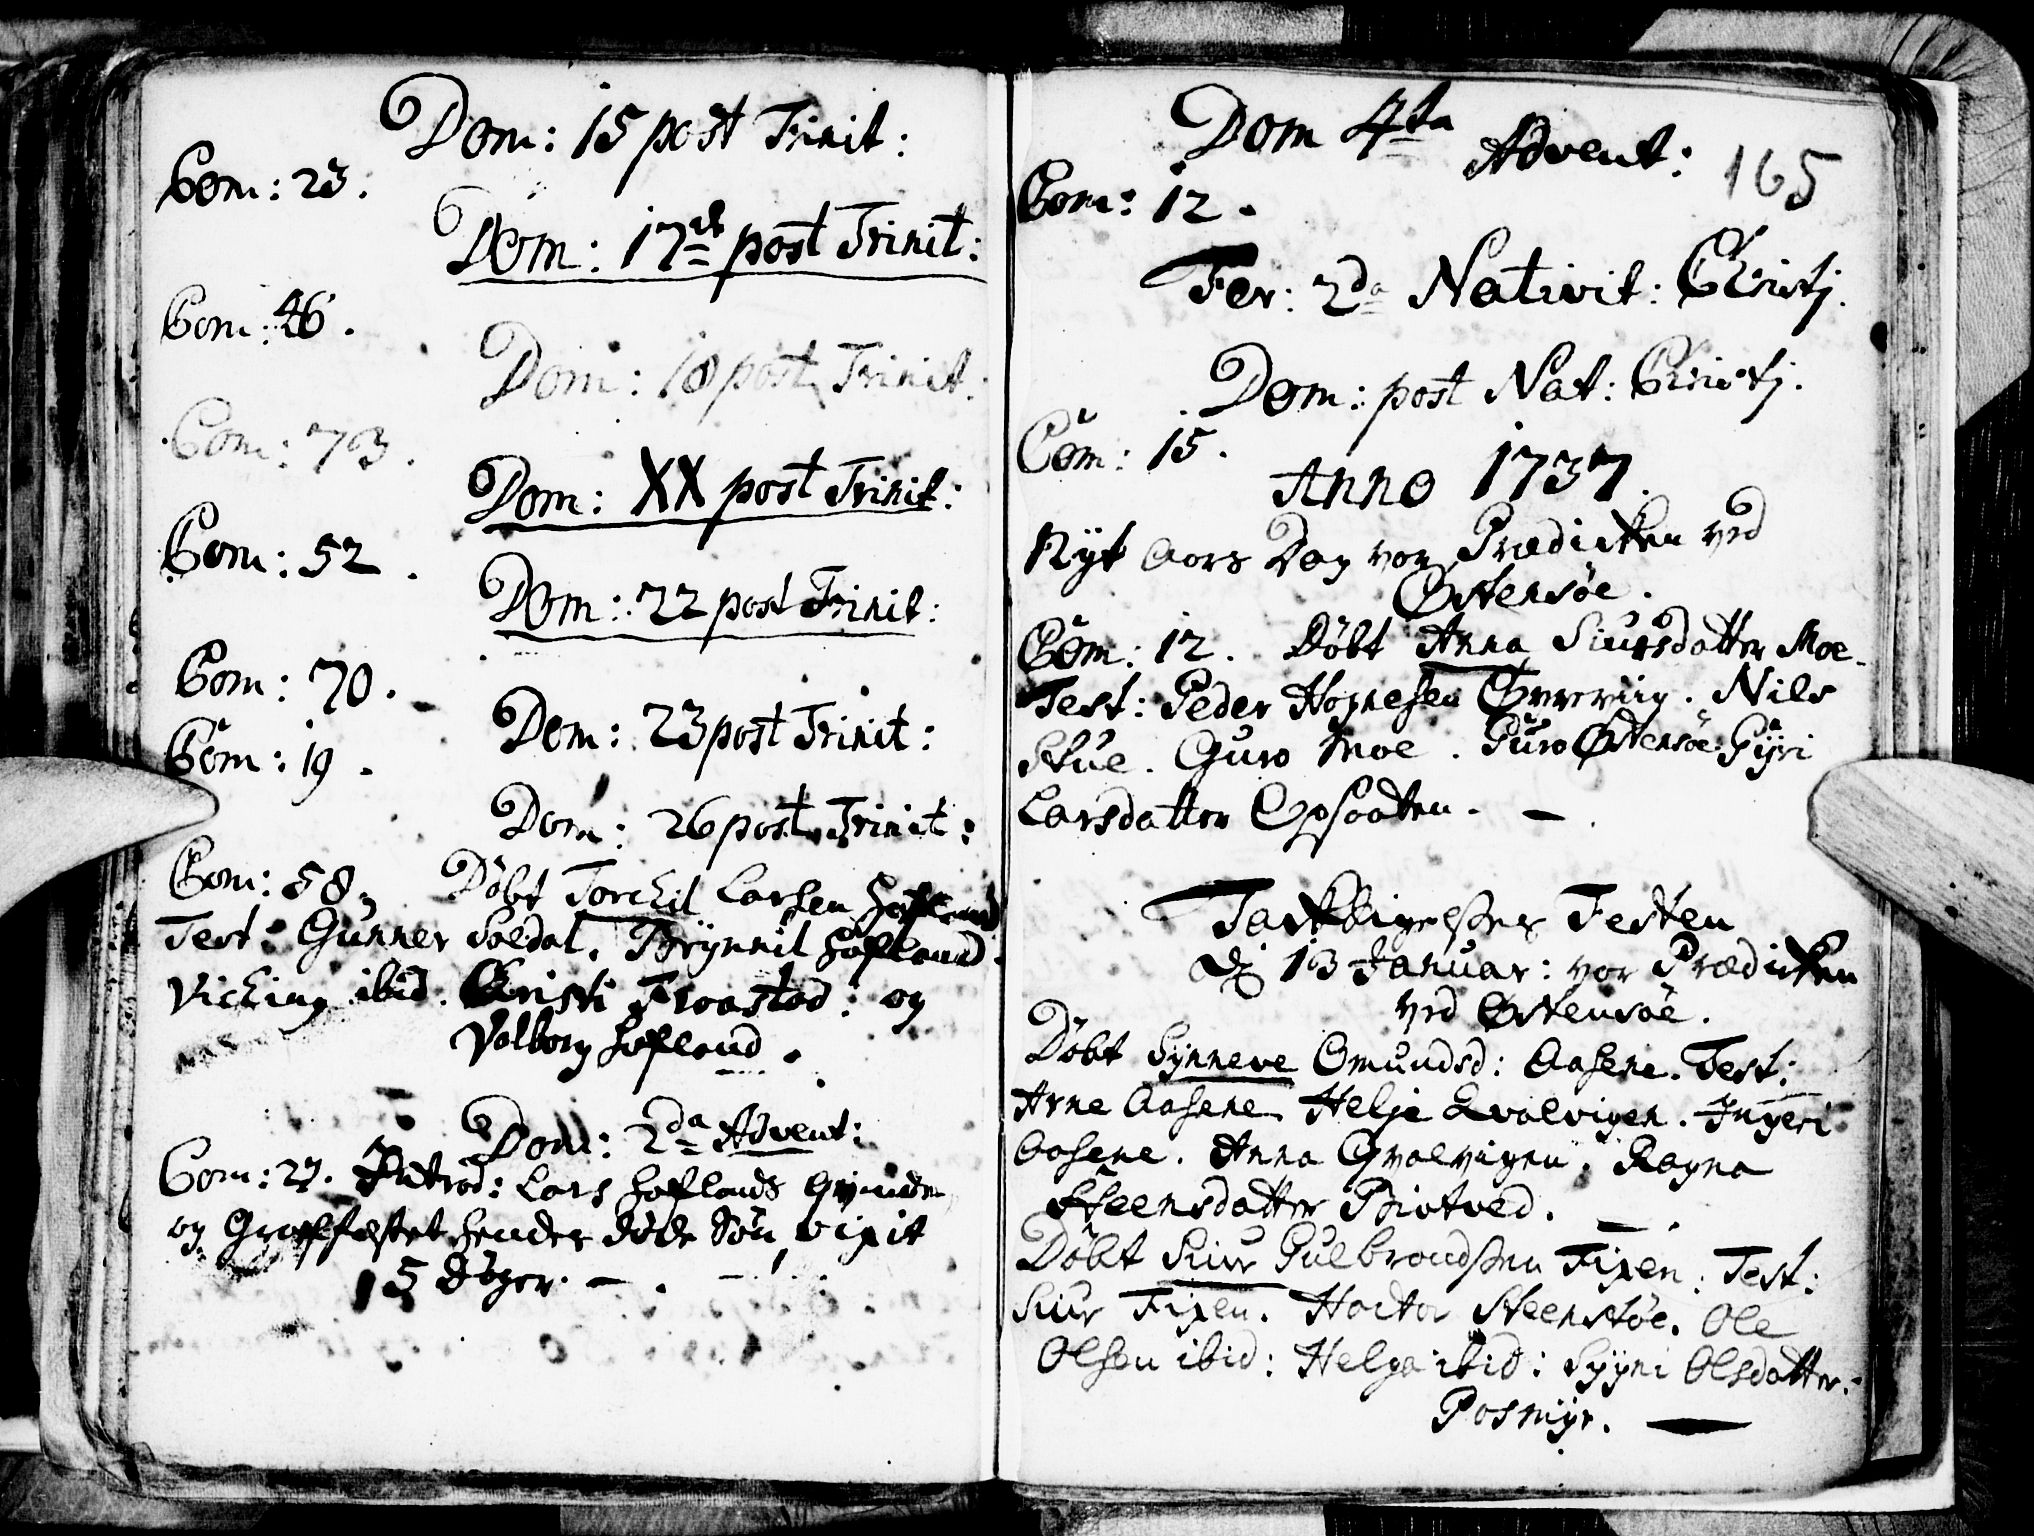 Dom: 15 post Trinit:
Com: 23.
Dom: 17de post Trinit:
Com: 46.
Dom: 18 post Trinit:
Com: 73.
Dom: XX post Trinit:
Com: 52.
Dom: 22 post Trinit:
Com: 70.
Dom: 23 post Trinit:
Com: 19.
Dom: 26 post Trinit:
Com: 58, Döbt Torchil Larsen Hofland
Test: Gunner Soldat. Brynnil Hofland.
Viching ibid. Christi Froastad: og
Valborg Hofland.
Dom: 2da Advent:
Com: 27. Introd: Lars Hoflands Qvinde
og Graffæstet hendes döde Sön, vixit
15 Dager. —
Dom 4ta Advent: 165
Com: 12.
Fer: 2da Nativit: Christj.
Dom: post Nat: Christj.
Com: 15.
Anno 1737.
Nyt Aars Dag var Prædicken ved
Östensöe.
Com: 12. Döbt Anna Siursdatter Moe.
Test: Peder Hognesen Nils
Stue. Guro Moe. Guro Östensöe. Gyri
Larsdatter Opsaaten. —
Tacksigelses Festen
dj 13 Januar: var Prædicken
ved Östensöe.
Döbt Synneve Omundsd: Aasene. Test:
Arne Aasene. Helje Qvalvigen. Ingeri
Aasene. Anna Qvalvigen. Ragna
Steensdatter Biotved. —
Döbt Siur Gulbrandsen Fixen: Test:
Siur Fixen. Hactor Steenstöe. Ole
Olsen ibid: Helga ibid: Syni Olsdatter.
Posmyr. —